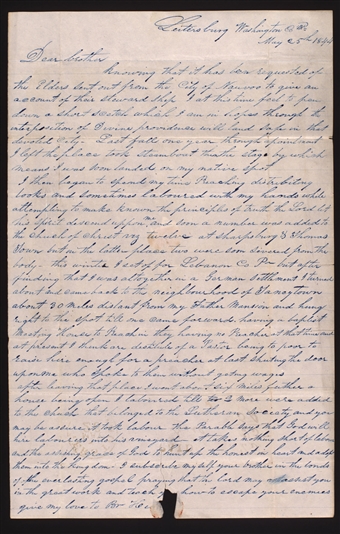 Leitersburg Washington Co
May 25th 1844
Dear brother
knowing that it has been requested of
the Elders sent out from the City of Nauvoo to give an
account of their Steward Ship I at this time feel to pen
down a short sketch which I am in hopes through the
interposition of Divine providence will land safe in that
devoted City. Last fall one year through
I left the place took Steamboat stage by which
means I was soon landed on my native spot
I then began to spend my time Preaching distributing
books and sometimes Laboured with my hands while
attempting to make known the principles of truth the Lord
his spirit and soon a number was added to
the Church of Christ at Shafsburg &
town out in the latter place two were soon severed from the
body this in the East of Lebanon Co Pa but after
finding that I was altogether in a German Settlement I turned
about and came back to the neighbourhood of Taneytown
about 30 miles distant from my Father Mansion and hung
right to the spot till one came forward having a baptist
Meeting House to Preach in they having no Preacher at that time and
at present I think are destitute of a Pastor being to poor to
raise hire enough for a preacher at last shuting the door
upon one who spoke to them without geting wages
after leaving that place I went about six miles farther a
house being open I Laboured till 2 more were added
to this Church that belonged to the Lutheran Society and you
may be assured it took labour the Parable says that God will
hire labourers into his vineyard It takes nothing short of labour
and the assisting grace of God to hunt up the honest in heart and adopt
them into the kingdom I subscribe myself your brother in the bonds
of the everlasting gospel praying that the Lord may assist you
in the great work and teach how to escape your enemies
give my love to Br